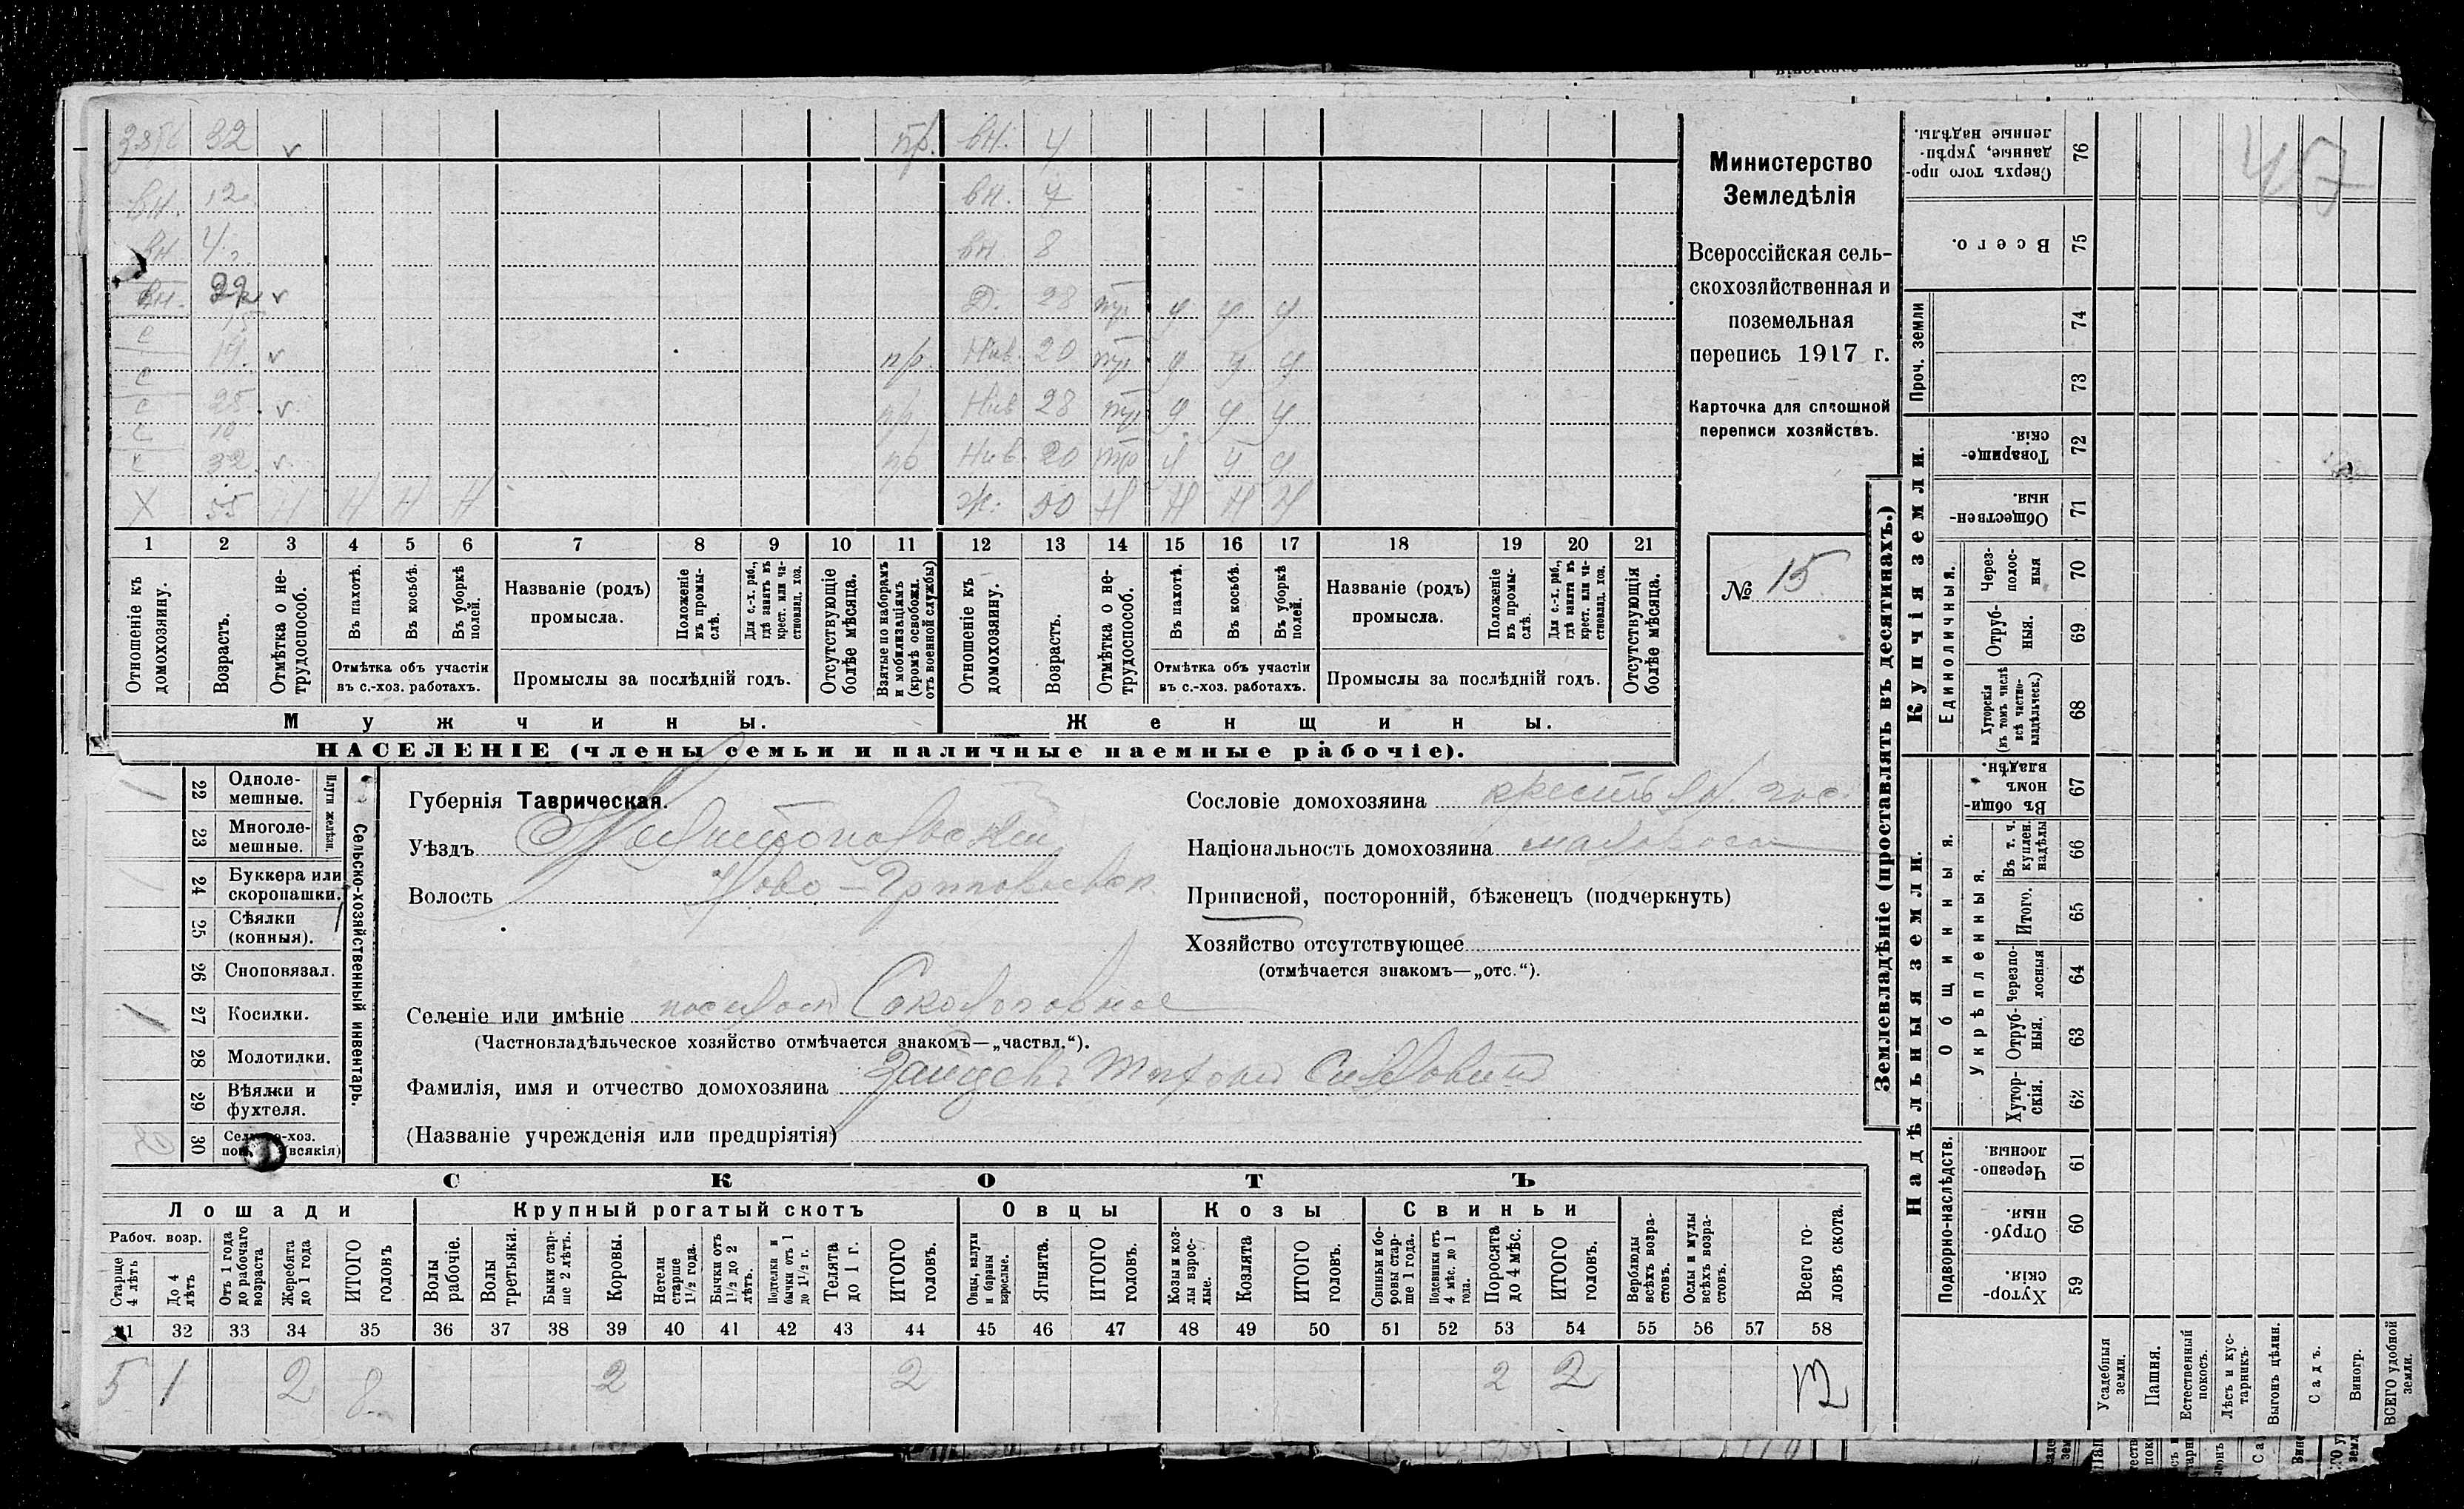 32 пр. вн. 4
вн. 12 вн. 7
вн 4 вн 8
вн. Д. 28
с 15
с 19. пр. Нив. 20
с 25. пр. Нив 28
с 10
с 32 пр Нив. 20
Х 55 Н Н Н Н Ж. 50 Н Н Н Н
1 2 3 4 5 6 7 8 9 10 11 12 13 14 15 16 17 18 19 20 21
Отношеніе къ домохозяину.
Возрастъ.
Отмѣтка о не-трудоспособ.
Въ пахотѣ.
Въ косьбѣ.
Въ уборкѣ полей.
Отмѣтка объ участіи
въ с.-хоз. работахъ.
Названіе (родъ)
промысла.
Положеніе въ промы-слѣ.
Для с.-х. раб., гдѣ занятъ въ крест. или ча-стновлад. хоз.
Промыслы за послѣдній годъ.
Отсутствующіе болѣе мѣсяца.
Взятые по наборамъ и мобилизаціямъ (кромѣ освобожд. отъ военной службы)
Отношеніе къ домохозяину.
Возрастъ.
Отмѣтка о не-трудоспособ.
Въ пахотѣ.
Въ косьбѣ.
Въ уборкѣ полей.
Отмѣтка объ участіи
въ с.-хоз. работахъ.
Названіе (родъ)
промысла.
Положеніе въ промы-слѣ.
Для с.-х. раб., гдѣ занята въ крест. или ча-стновлад. хоз.
Промыслы за послѣдній годъ.
Отсутствующія болѣе мѣсяца.
Мужчины. Женщины.
НАСЕЛЕНІЕ (члены семьи и наличные наемные рабочіе).
Министерство
Земледѣлія
Всероссійская сель-
скохозяйственная и
поземельная
перепись 1917 г.
Карточка для сплошной
переписи хозяйствъ.
№ 15
Сельско-хозяйственный инвентарь.
Плуги желѣзн.
22 Одноле-мешные.
23 Многоле-мешные.
24 Буккера или скоропашки.
25 Сѣялки (конныя).
26 Сноповязал.
27 Косилки.
28 Молотилки.
29 Вѣялки и фухтеля.
30
всякія)
Губернія Таврическая.
Уѣздъ Мелитопольскій
Волость Ново-Григорьевск.
Сословіе домохозяина крестьян.
Національность домохозяина малоросс
Приписной, посторонній, бѣженецъ (подчеркнуть)
Хозяйство отсутствующее
(отмѣчается знакомъ—„отс.“).
Селеніе или имѣніе
(Частновладѣльческое хозяйство отмѣчается знакомъ—„частвл.“).
Фамилія, имя и отчество домохозяина Зайцевъ
(Названіе учрежденія или предпріятія)
СКОТЪ
Лошади Крупный рогатый скотъ Овцы Козы Свиньи
Рабоч. возр.
Старше 4 лѣтъ
До 4 лѣтъ
Отъ 1 года до рабочаго возраста
Жеребята до 1 года
ИТОГО головъ
Волы рабочіе.
Волы третьяки.
Быки стар-ше 2 лѣтъ.
Коровы.
Нетели старше 1½ года.
Бычки отъ 1½ до 2 лѣтъ.
Подтелки и бычки отъ 1 до 1½ г.
Телята до 1 г.
ИТОГО головъ.
Овцы, валухи и бараны взрослые.
Ягнята.
ИТОГО головъ.
Козы и коз-лы взрос-лые.
Козлята
ИТОГО головъ.
Свиньи и бо-ровы стар-ше 1 года.
Подсвинки отъ 4 мѣс. до 1 года.
Поросята до 4 мѣс.
ИТОГО головъ.
Верблюды всѣхъ возра-стовъ.
Ослы и мулы всѣхъ возра-стовъ.
Всего го-ловъ скота.
31 32 33 34 35 36 37 38 39 40 41 42 43 44 45 46 47 48 49 50 51 52 53 54 55 56 57 58
5 1 2 8 2 2 2 2 12
Землевладѣніе (проставлять въ десятинахъ.)
Купчія земли.
Надѣльныя земли.
76 Сверхъ того про-данные, укрѣп-ленные надѣлы.
75 Всего.
Проч. земли
74
73
72 Товарище-скія.
71 Обществен-ныя.
Единоличныя.
70 Через-полос-ныя
69 Отруб-ныя.
68 Хуторскія (въ томъ числѣ всѣ частно-владѣльческ.)
Общинныя.
67 Въ общин-номъ владѣн.
Укрѣпленныя.
66 Въ т. ч. куплен. надѣлы
65 Итого.
64 Черезпо-лосныя
63 Отруб-ныя.
62 Хутор-скія.
Подворно-наслѣдств.
61 Черезпо-лосныя.
60 Отруб-ныя.
59 Хутор-скія.
Усадебныя земли.
Пашня.
Естественный покосъ.
Лѣсъ и кус-тарникъ.
Выгонъ цѣлин.
Садъ.
Виногр.
ВСЕГО удобной земли.
47